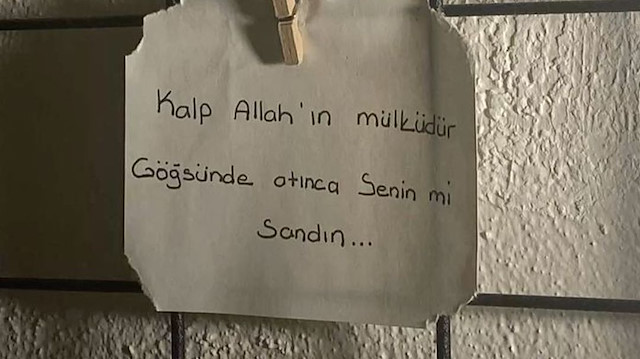 Kalp Allah'ın mülküdür
Göğsünde atınca Senin mi
Sandın...